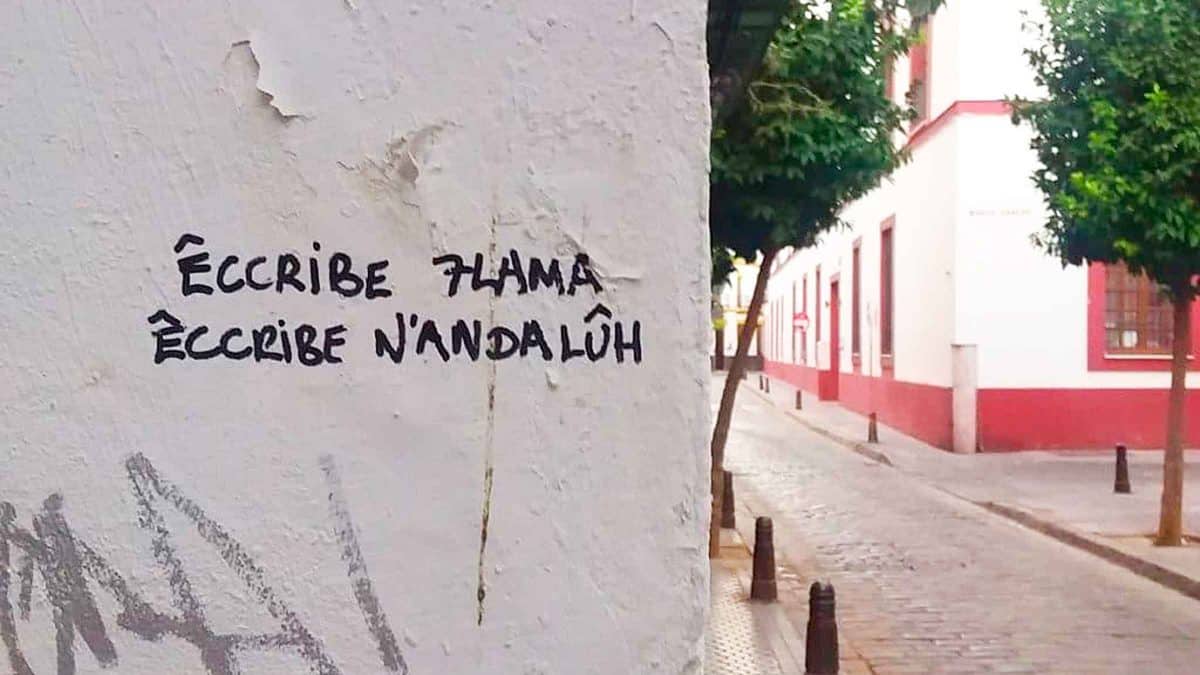 ÊCCRiBE 7LAMA
ÊCCRiBE N'ANDALÛH